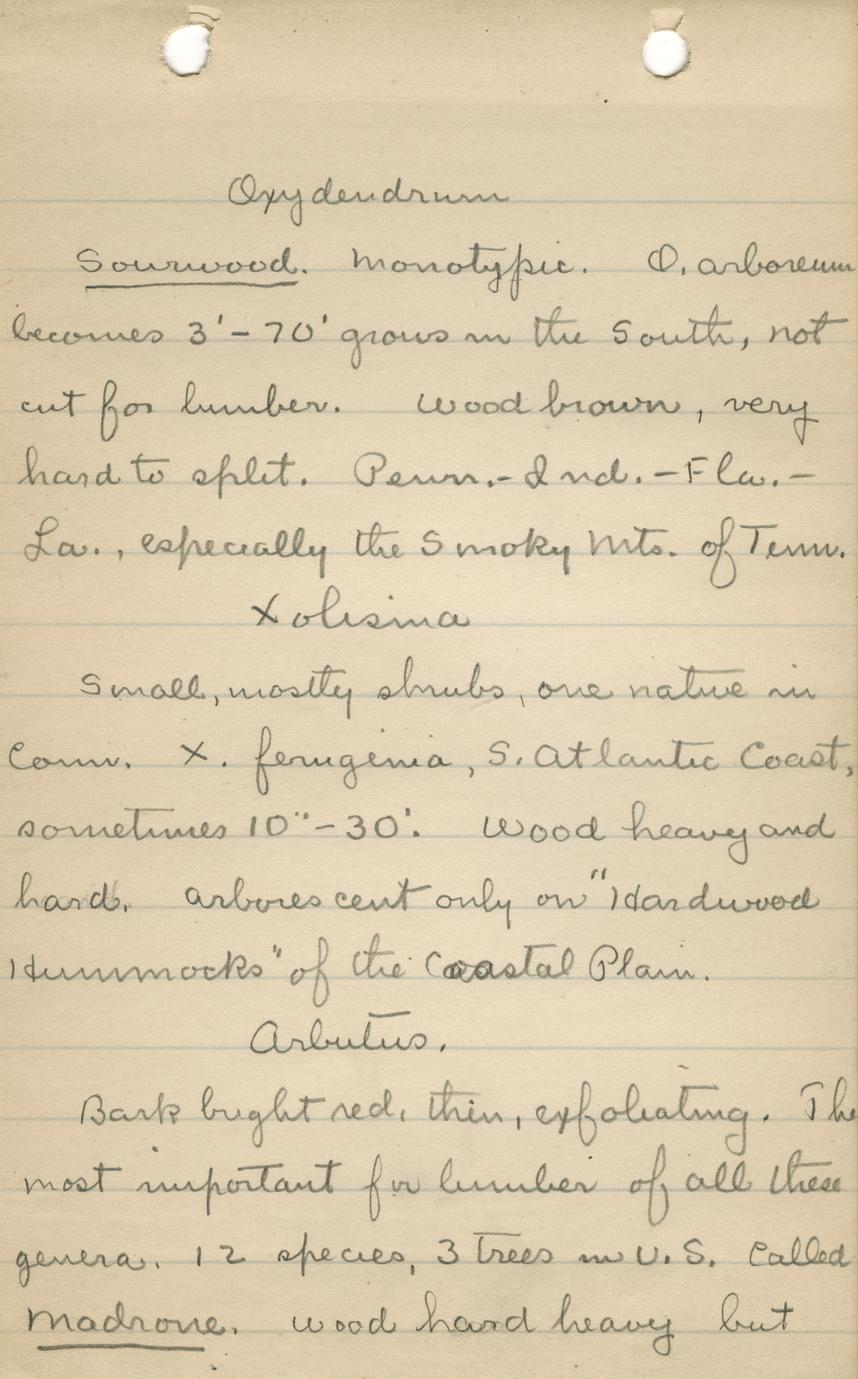 Oxydendrum
Sourwood. Monotypic. O. arboreum
becomes 3'-70' grows in the South, not
cut for lumber. Wood brown, very
hard to split. Penn.-Ind.-Fla.-
La., especially the Smoky Mts. of Tenn.
Xolisma
Small, mostly shrubs, one native in
Conn. X. ferugenia, S. Atlantic Coast,
sometimes 10"-30'. Wood heavy and
hard. arborescent only on "Hardwood
Hummocks" of the Coastal Plain.
Arbutus.
Bark bright red, thin, exfoliating. The
most important for lumber of all these
genera. 12 species, 3 trees in U.S. called
Madrone. Wood hard heavy but